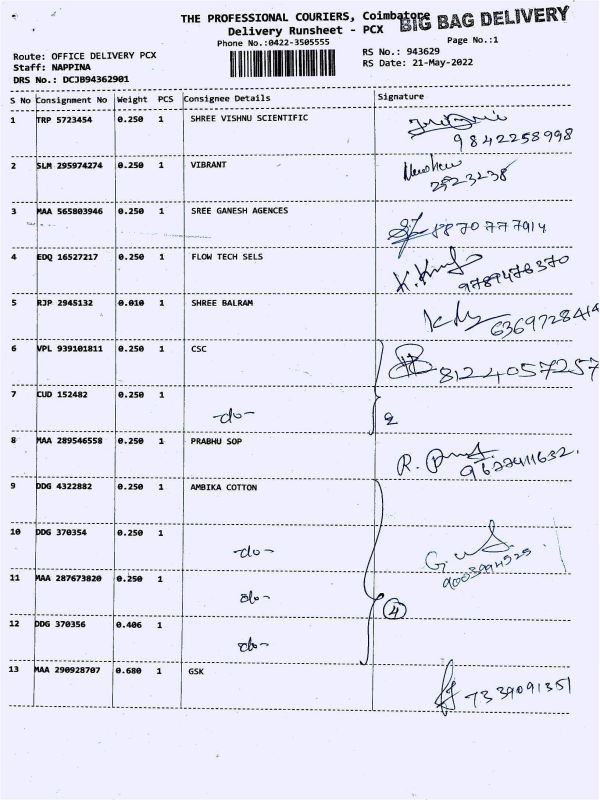 THE PROFESSIONAL COURIERS, Coimbatore
BIG BAG DELIVERY
Delivery Runsheet - PCX
Phone No.:0422-3505555
Page No.:1
Route: OFFICE DELIVERY PCX
RS No.: 943629
Staff: NAPPINA
RS Date: 21-May-2022
DRS No.: DCJB94362901
S No Consignment No Weight PCS Consignee Details Signature
1 TRP 5723454 0.250 1 SHREE VISHNU SCIENTIFIC
9842258998
2 SLM 295974274 0.250 1 VIBRANT
2523238
3 MAA 565803946 0.250 1 SREE GANESH AGENCES
8870777914
4 EDQ 16527217 0.250 1 FLOW TECH SELS
9789476370
5 RJP 2945132 0.010 1 SHREE BALRAM
6369728414
6 VPL 939101811 0.250 1 CSC
8124057257
7 CUD 152482 0.250 1
-do- 2
8 MAA 289546558 0.250 1 PRABHU SOP
9677411632.
9 DDG 4322882 0.250 1 AMBIKA COTTON
10 DDG 370354 0.250 1
-do-
11 MAA 287673820 0.250 1
-do- 4
12 DDG 370356 0.406 1
-do-
13 MAA 290928707 0.680 1 GSK
7339091351